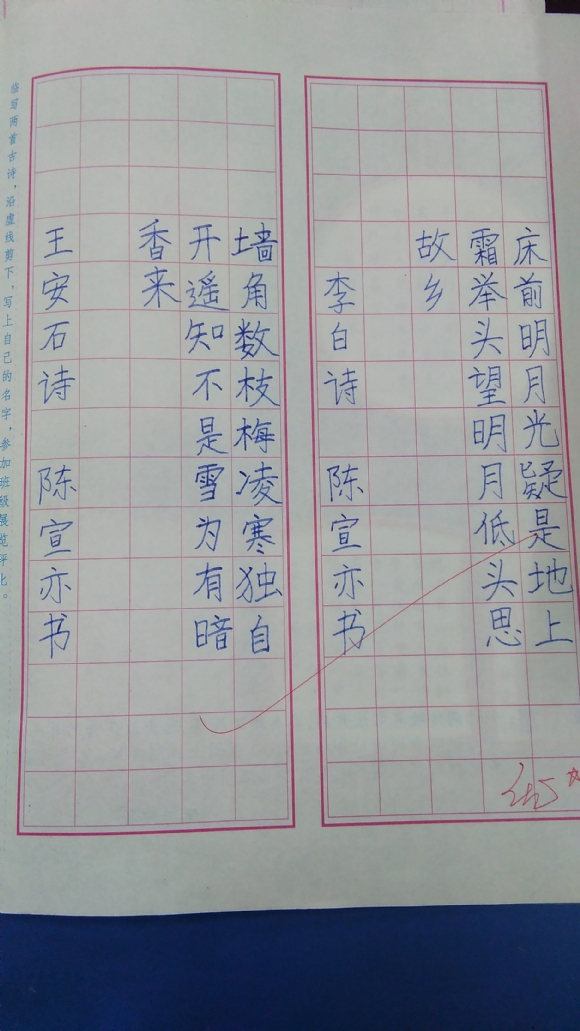 床前明月光疑是地上
霜举头望明月低头思
故乡
李白诗 陈宣亦书
墙角数枝梅凌寒独自
开遥知不是雪为有暗
香来
王安石诗 陈宣亦书
临写两首古诗,沿虚线剪下,写上自己的名字,参加班级展览评比。